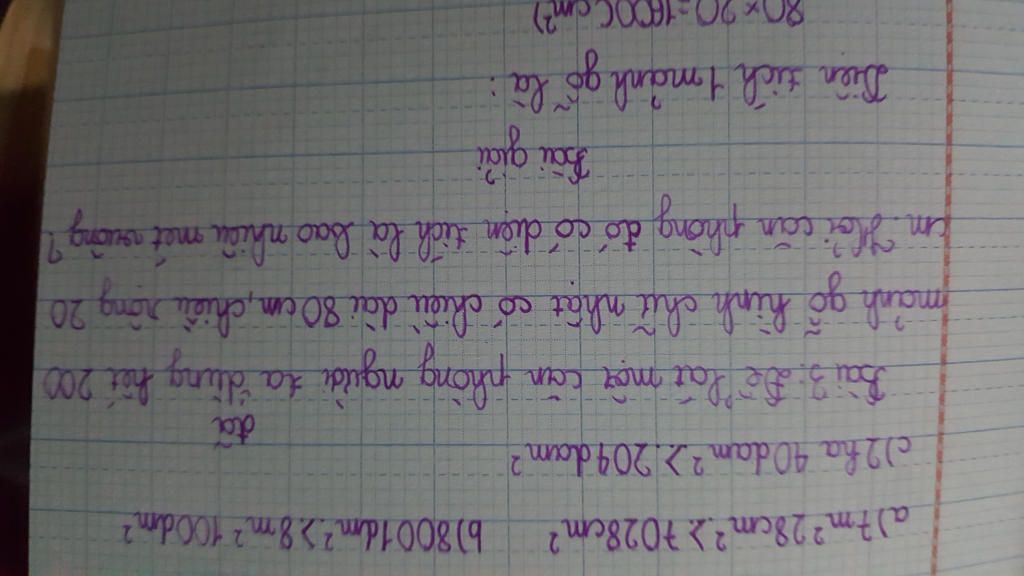 a) 7m² 28cm² > 7028cm² b) 8001dm² > 8m² 100dm²
c) 2ha 40dam² > 204dam²
đã
Bài 3: Để lát một căn phòng người ta dùng hết 200
mảnh gỗ hình chữ nhật có chiều dài 80cm, chiều rộng 20
cm. Hỏi căn phòng đó có diện tích là bao nhiêu mét vuông?
Bài giải
Diện tích 1 mảnh gỗ là:
80 × 20 = 1600 (cm²)